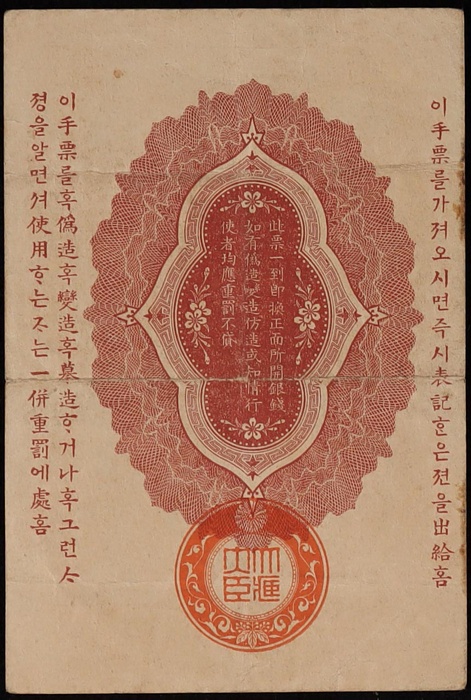 이手票를가져오시면즉시表記ᄒᆞᆫ은젼을出給홈
此票一到卽換正面所開銀錢
如有僞造變造仿造或知情行
使者均應重罰不貸
이手票를혹僞造혹變造혹摹造ᄒᆞ거나혹그런ᄉ
졍을알면셔使用ᄒᆞᄂᆞᆫᄌᆞᄂᆞᆫ一併重罰에處홈
大臣